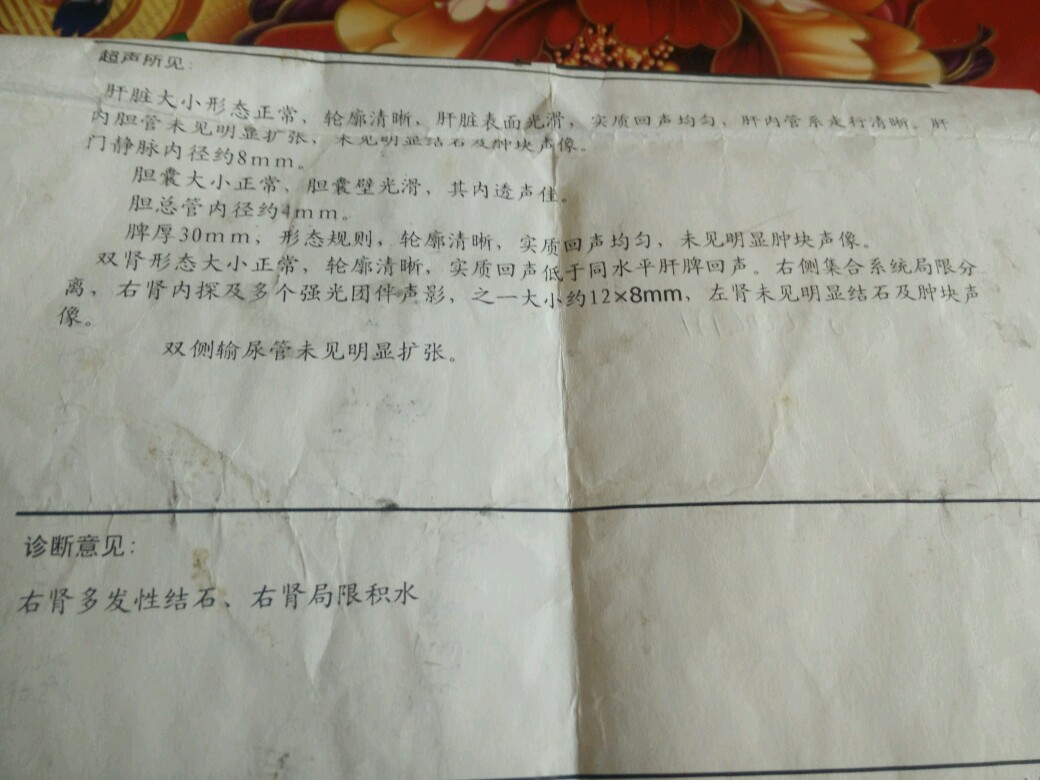 超声所见:
肝脏大小形态正常、轮廓清晰、肝脏表面光滑，实质回声均匀，肝内管系走行清晰。肝
内胆管未见明显扩张，未见明显结石及肿块声像。
门静脉内径约8mm。
胆囊大小正常、胆囊壁光滑，其内透声佳。
胆总管内径约4mm。
脾厚30mm、形态规则，轮廓清晰、实质回声均匀，未见明显肿块声像。
双肾形态大小正常，轮廓清晰，实质回声低于同水平肝脾回声。右侧集合系统局限分
离，右肾内探及多个强光团伴声影，之一大小约12×8mm，左肾未见明显结石及肿块声
像。
双侧输尿管未见明显扩张。
诊断意见:
右肾多发性结石、右肾局限积水